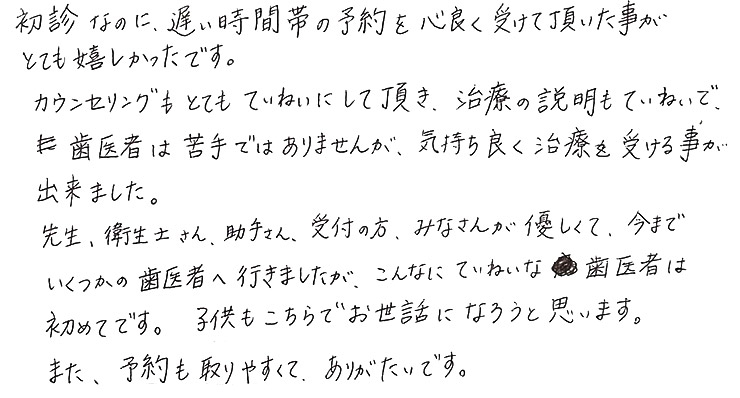 初診なのに、遅い時間帯の予約を心良く受けて頂いた事が
とても嬉しかったです。
カウンセリングもとてもていねいにして頂き、治療の説明もていねいで、
歯医者は苦手ではありませんが、気持ち良く治療を受ける事が
出来ました。
先生、衛生士さん、助手さん、受付の方、みなさんが優しくて、今まで
いくつかの歯医者へ行きましたが、こんなにていねいな歯医者は
初めてです。子供もこちらでお世話になろうと思います。
また、予約も取りやすくて、ありがたいです。